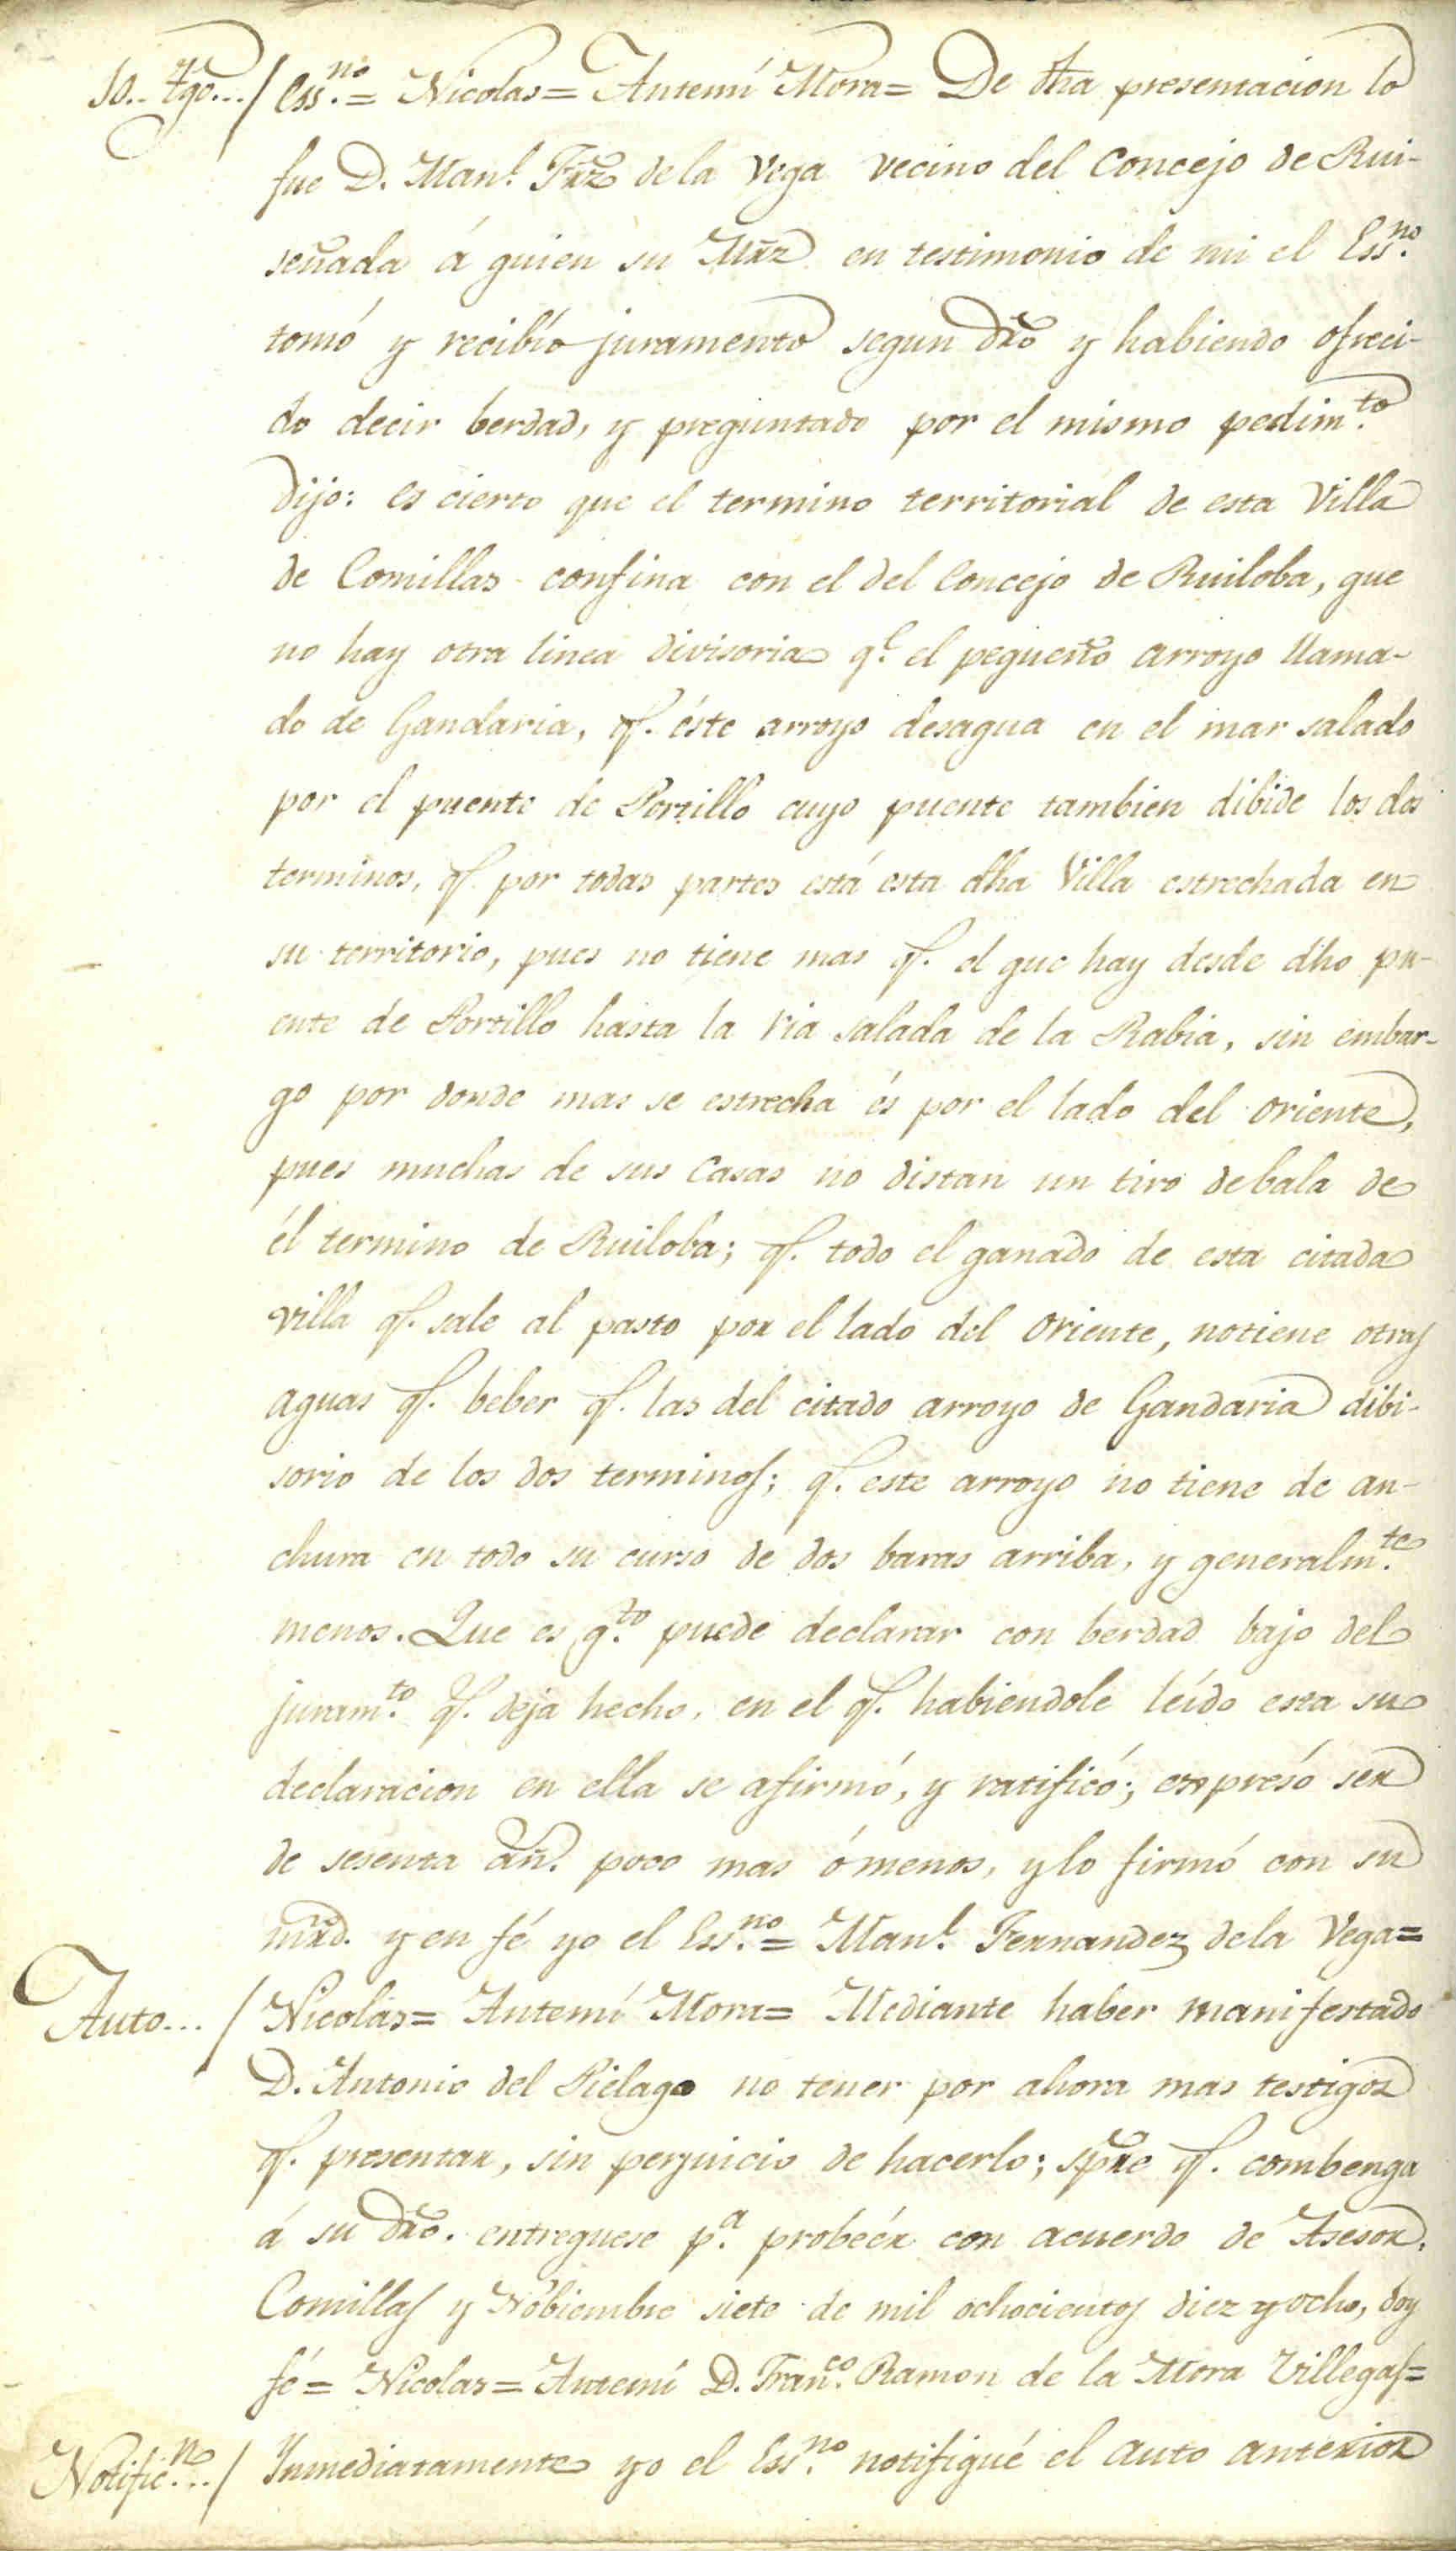 10.. Tgo... / Ess.no = Nicolas = Antemi Mora = De dha presentacion lo
fue D. Man.l Frz de la Vega vecino del Concejo de Rui-
señada á quien su Mrz en testimonio de mi el Ess.no
tomó y recibío juramento segun dro y habiendo ofreci-
do decir berdad, y preguntado por el mismo pedim.to
dijo: es cierto que el termino territorial de esta Villa
de Comillas confina con el del Concejo de Ruiloba, que
no hay otra linea divisoria q.e el pequeño arroyo llama-
do de Gandaria, q. éste arroyo desagua en el mar salado
por el puente de Portillo cuyo puente tambien dibide los dos
terminos, q. por todas partes está esta dha Villa estrechada en
su territorio, pues no tiene mas q. el que hay desde dho pu-
ente de Portillo hasta la ria salada de la Rabia, sin embar-
go por donde mas se estrecha és por el lado del oriente,
pues muchas de sus Casas no distan un tiro debala de
él termino de Ruiloba; q. todo el ganado de esta citada
villa q. sale al pasto por el lado del oriente, notiene otras
aguas q. beber q. las del citado arroyo de Gandaria dibi-
sorio de los dos terminos; q. este arroyo no tiene de an-
chura en todo su curso de dos baras arriba, y generalm.te
menos. Que es q.to puede declarar con berdad bajo del
juram.to q. deja hecho, en el q. habiendole leído esta su
declaracion en ella se afirmó, y ratificó; expresó ser
de sesenta añ. poco mas ó menos, y lo firmó con su
mrd. y en fé yo el Ess.no = Man.l Fernandez dela Vega =
Auto... / Nicolás = Antemí Mora = Mediante haber manifestado
D. Antonio del Piélago no tener por ahora mas testigos
q. presentar, sin perjuicio de hacerlo; spre q. combenga
á su dro. entreguese p.a probéér con acuerdo de Asesor.
Comillas y Nobiembre siete de mil ochocientos diez y ocho, doy
fé = Nicolas = Antemi D. Fran.co Ramon de la Mora Villegas =
Notific.n... / Inmediatamente yo el Ess.no notifiqué el auto anterior